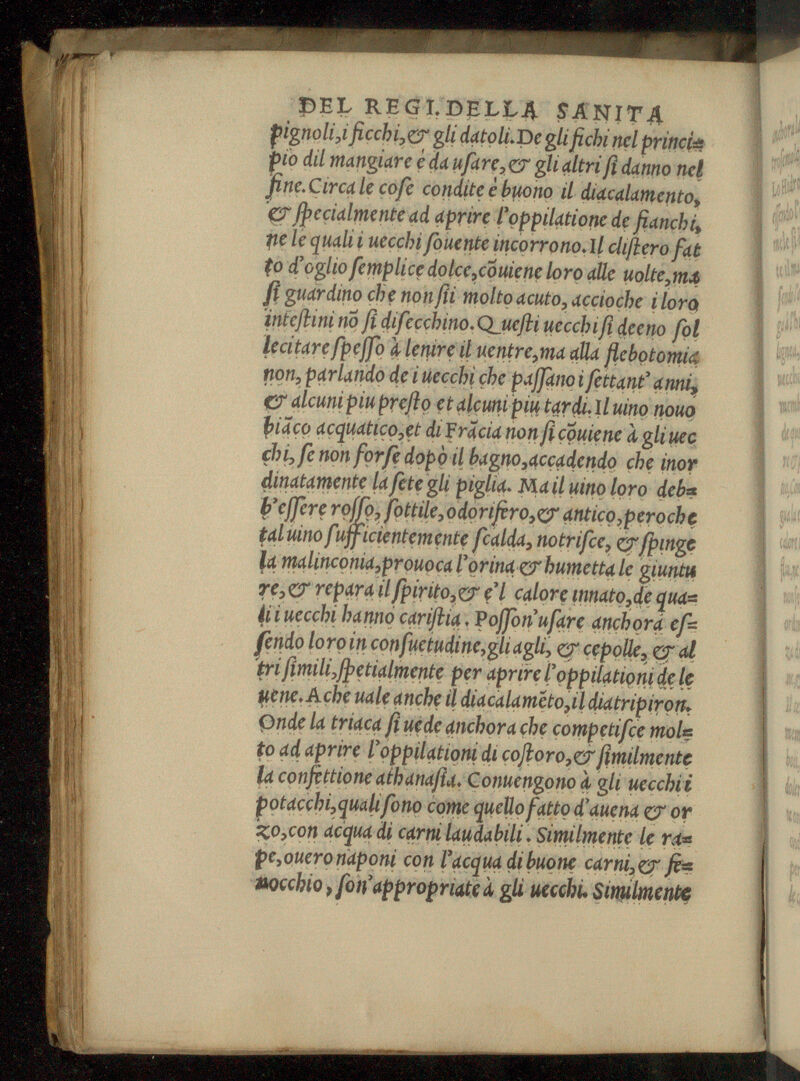 DEL REGI. DELLA SANITA
pignoli, i ficchi, & gli datoli. De gli fichi nel princi=
pio dil mangiare é da uſare, & gli altri ſi danno nel
fine. Circa le coſe condite é buono il diacalamento,
& ſpecialmente ad aprire l'oppilatione de fianchi,
ne le quali i uecchi ſouente incorrono. Il cliſtero fat
to d'oglio ſemplice dolce, cõuiene loro alle uolte, ma
ſi guardino che non ſii molto acuto, accioche i loro
inteſtini nõ ſi diſecchino. Queſti uecchi ſi deeno ſol
lecitare ſpeſſo à lenire il uentre, ma alla flebotomia
non, parlando de i uecchi che paſſano i ſettant' anni,
& alcuni piu preſto et alcuni piu tardi. Il uino nouo
biãco acquatico, et di Frãcia non ſi cõuiene à gli uec
chi, ſe non forſe dopò il bagno, accadendo che inor
dinatamente la ſete gli piglia. Ma il uino loro deb=
b'eſſere roſſo, ſottile, odorifero, & antico, peroche
tal uino ſufficientemente ſcalda, notriſce, & ſpinge
la malinconia, prouoca l'orina & humetta le giuntu
re, & repara il ſpirito, & e'l calore innato, de qua=
li i uecchi hanno cariſtia. Poſſon' uſare anchora eſ=
ſendo loro in conſuetudine, gli agli, & cepolle, & al
tri ſimili, ſpetialmente per aprire l'oppilationi de le
uene. A che uale anche il diacalamẽto, il diatripiron.
Onde la triaca ſi uede anchora che competiſce mol=
to ad aprire l'oppilationi di coſtoro, & ſimilmente
la confettione athanaſia. Conuengono à gli uecchi i
potacchi, quali ſono come quello fatto d'auena & or
zo, con acqua di carni laudabili. Similmente le ra=
pe, ouero naponi con l'acqua di buone carni, & fe=
nocchio, ſon' appropriate à gli uecchi. Similmente